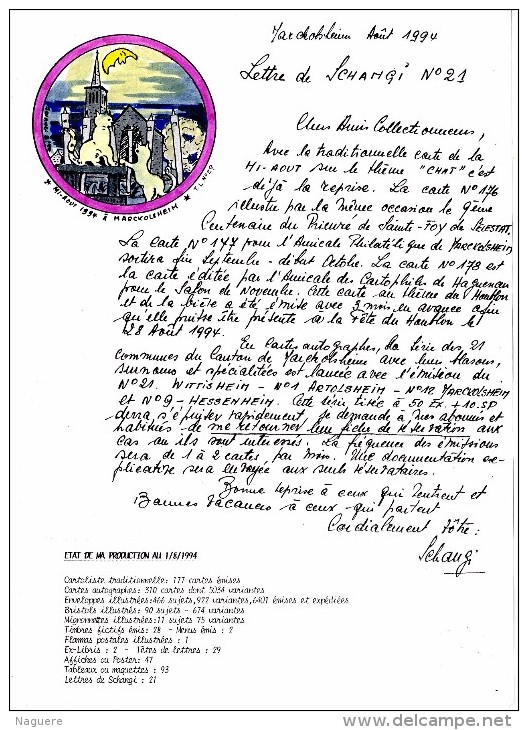 Marckolsheim Août 1994
Lettre de SCHANGI N°21
MI-AOUT 1994 à MARCKOLSHEIM
Chers Amis Collectionneurs,
Avec la traditionnelle carte de la
MI-AOUT sur le thème "CHAT" c'est
déjà la reprise. La carte N°176
illustre par la même occasion le 9ème
Centenaire du Prieuré de Sainte-FOY de SELESTAT.
La carte N°177 pour l'Amicale Philatélique de MARCKOLSHEIM
sortira fin Septembre - début Octobre. La carte N°178 est
la carte éditée par l'Amicale des Cartophiles de Haguenau
pour le Salon de Novembre. Cette carte au thème du Houblon
et de la bière a été émise avec 3 mois en avance afin
qu'elle puisse être présente à la Fête du Houblon le
28 Août 1994.
En cartes autographes, la série des 21
communes du Canton de Marckolsheim avec leurs blasons,
surnoms et spécialités est lancée avec l'émission du
N°21. WITTISHEIM - N°1 ARTOLSHEIM - N°12 MARCKOLSHEIM
et N°9 - HESSENHEIM. Cette série titrée à 50 EX. + 10.SP
devra s'épuiser rapidement, je demande à mes abonnés et
habitués de me retourner leur fiche de réservation aux
cas où ils sont intéressés. La fréquence des émissions
sera de 1 à 2 cartes, par mois. Une documentation ex-
plicative sera envoyée aux seuls réservataires.
Bonne reprise à ceux qui rentrent et
Bonnes Vacances à ceux - qui partent
Cordialement Vôtre:
Schangi
ETAT DE MA PRODUCTION AU 1/8/1994
Cartoliste traditionnelle: 177 cartes émises
Cartes autographes: 310 cartes dont 5034 variantes
Enveloppes illustrées:466 sujets,972 variantes,6401 émises et expédiées
Bristols illustrés: 90 sujets - 674 variantes
Mignonnettes illustrées:11 sujets 75 variantes
Timbres fictifs émis: 28 - Menus émis : 2
Flammes postales illustrées : 1
Ex-Libris : 2 - Têtes de lettres : 29
Affiches ou Poster: 47
Tableaux ou maquettes : 93
Lettres de Schangi : 21
Naguere
www.delcampe.net